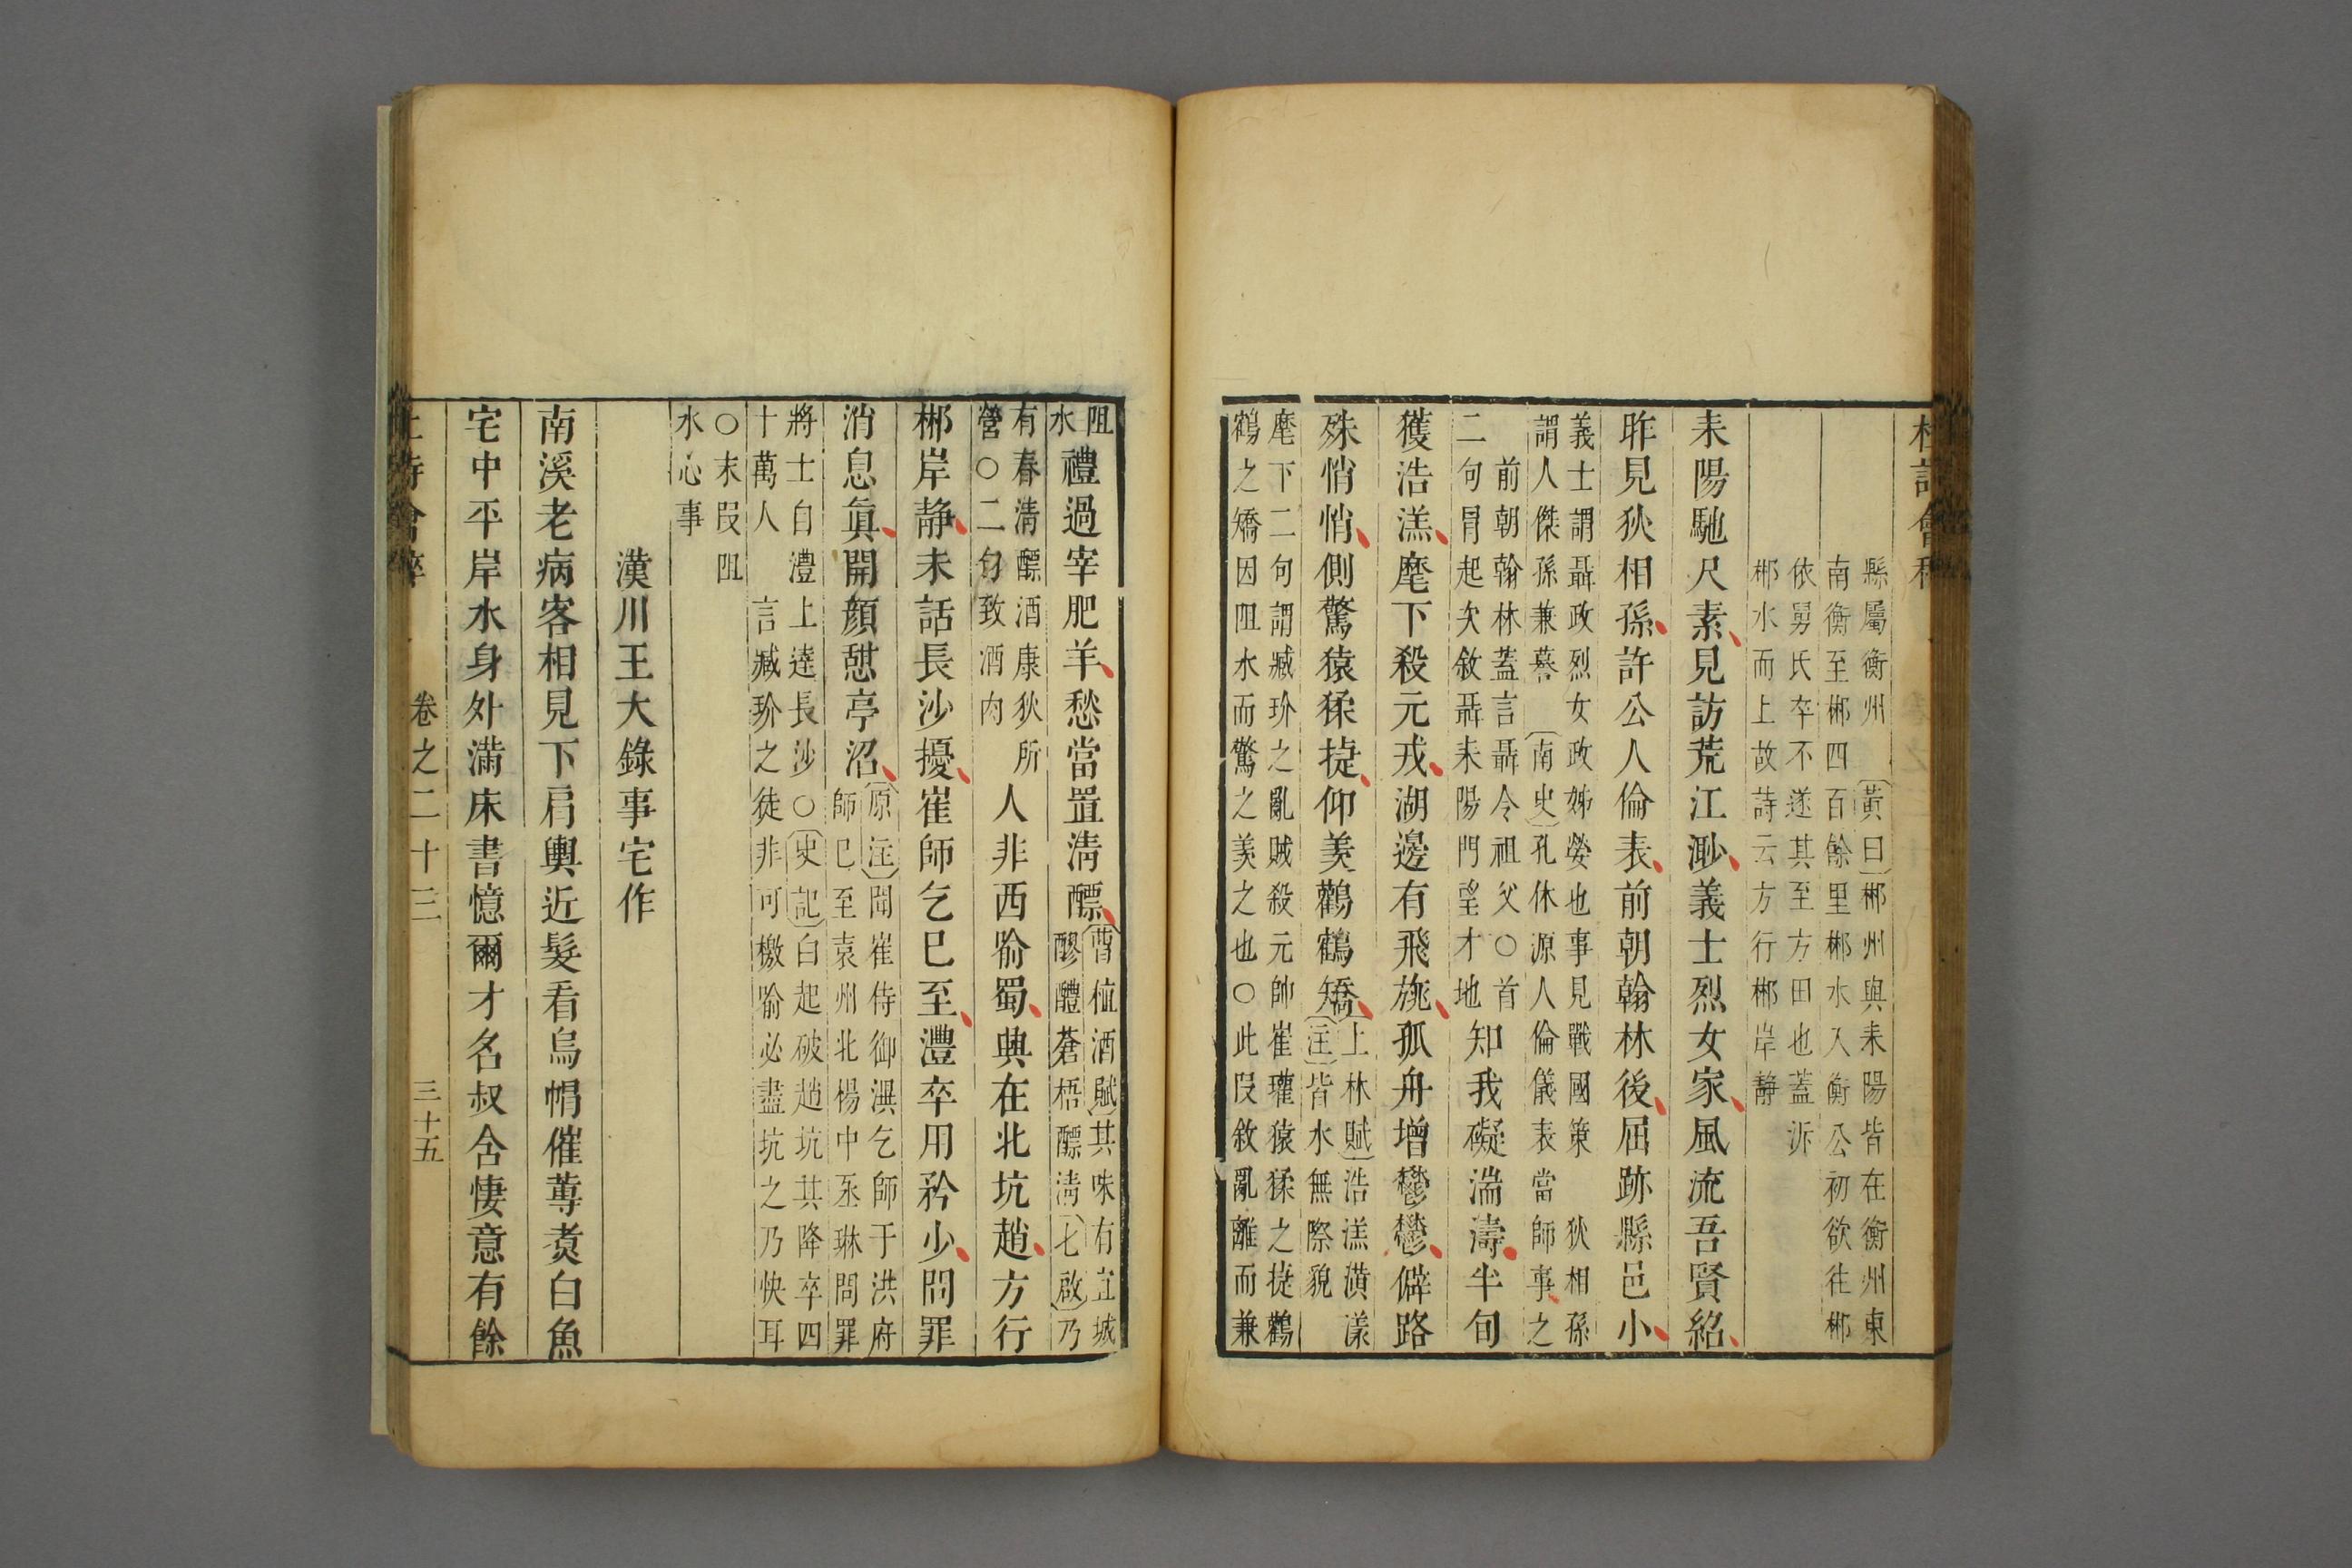 杜詩會稡
縣屬衡州　〔黃曰〕郴州與耒陽皆在衡州東
南衡至郴四百餘里郴水入衡公初欲往郴
依舅氏卒不遂其至方田也蓋泝
郴水而上故詩云方行郴岸靜
耒陽馳尺素見訪荒江渺義士烈女家風流吾賢紹
昨見狄相孫許公人倫表前朝翰林後屈跡縣邑小
義士謂聶政烈女政姊嫈也事見戰國策　狄相孫
謂人傑孫兼謩　〔南史〕孔休源人倫儀表當師事之
前朝翰林蓋言聶令祖父○首
二句冐起次敘聶耒陽門望才地
知我礙湍濤半旬
獲浩溔麾下殺元戎湖邊有飛旐孤舟增鬱鬱僻路
殊悄悄側驚猿猱捷仰羨鸛鶴矯
〔上林賦〕浩溔潢漾
〔注〕皆水無際貌
麾下二句謂臧玠之亂賊殺元帥崔瓘猿猱之捷鸛
鶴之矯因阻水而驚之羨之也○此叚敘亂離而兼
阻
水
禮過宰肥羊愁當置清醥
〔曹植酒賦〕其味有宜城
醪醴蒼梧醥清〔七啟〕乃
有春清醥酒康狄所
營○二句致酒肉
人非西喻蜀興在北坑趙方行
郴岸靜未話長沙擾崔師乞已至澧卒用矜少問罪
消息眞開顏憇亭沼
〔原注〕聞崔侍御潩乞師于洪府
師已至袁州北楊中丞琳問罪
將士自澧上達長沙○〔史記〕白起破趙坑其降卒四
十萬人　言臧玠之徒非可檄喻必盡坑之乃快耳
○末叚阻
水心事
漢川王大錄事宅作
南溪老病客相見下肩輿近髮看烏帽催蓴煑白魚
宅中平岸水身外滿床書憶爾才名叔含悽意有餘
杜詩會稡　卷之二十三　三十五